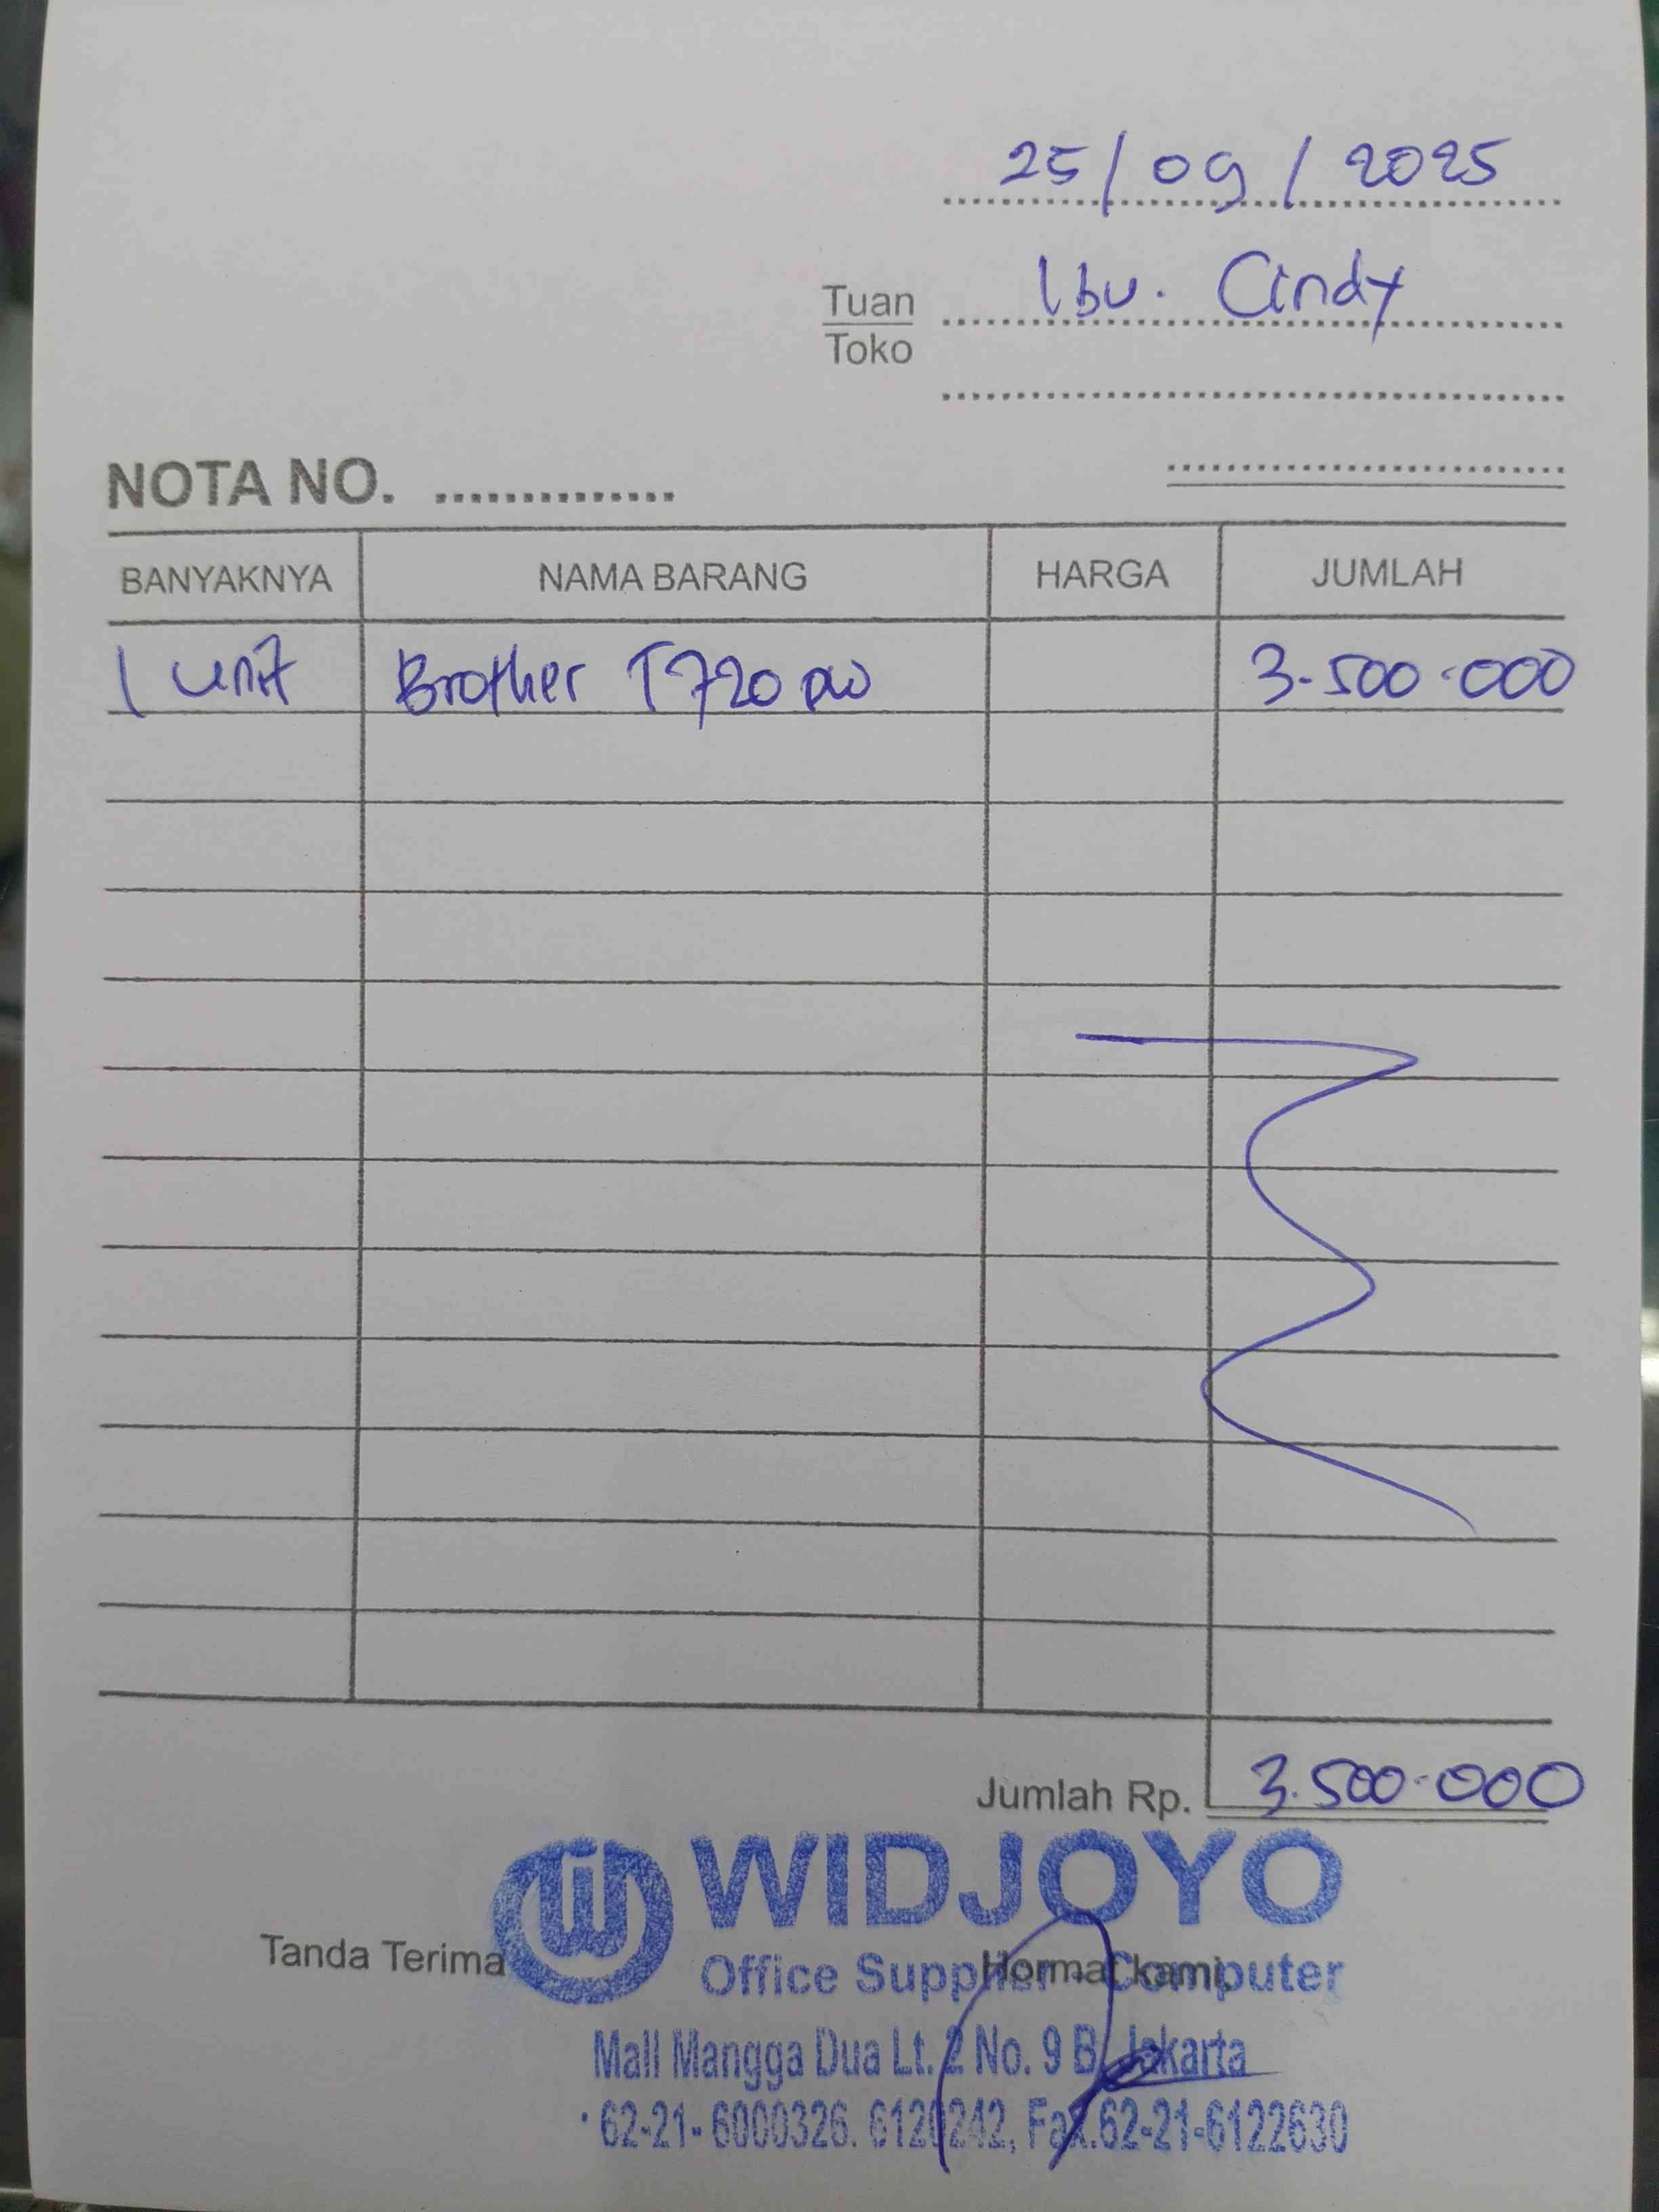 25/09/2025
Tuan Ibu. Cindy
Toko
NOTA NO. ..............
BANYAKNYA NAMA BARANG HARGA JUMLAH
1 unit Brother T720 DW 3.500.000
Jumlah Rp. 3.500.000
WIDJOYO
Tanda Terima Hormat kami,
Office Supplier - Computer
Mall Mangga Dua Lt. 2 No. 9 B, Jakarta
62-21- 6000326. 6120242, Fax.62-21-6122630